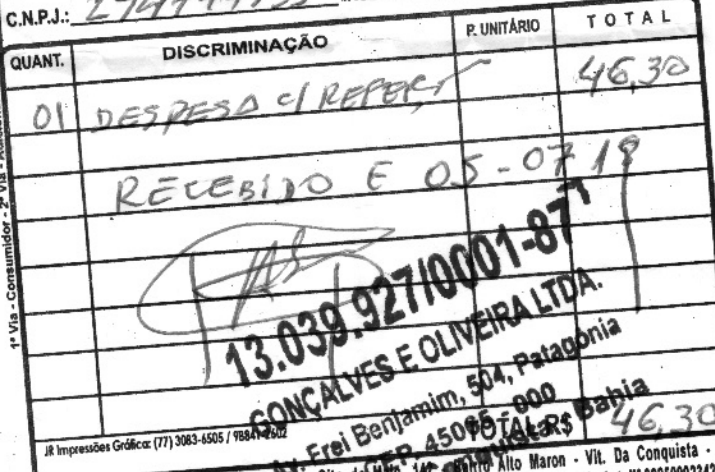 C.N.P.J.:
QUANT. DISCRIMINAÇÃO P. UNITÁRIO TOTAL
01 DESPESA C/ REFEIÇ 46,30
RECEBIDO E 05-07 18
13.039.927/0001-87
GONÇALVES E OLIVEIRA LTDA.
Av. Frei Benjamim, 504, Patagônia
CEP 45065-000
Bahia
TOTAL R$ 46,30
1ª Via - Consumidor - 2ª Via -
JR Impressões Gráfica: (77) 3083-6505 / 98841-2602
Alto Maron - Vit. Da Conquista -